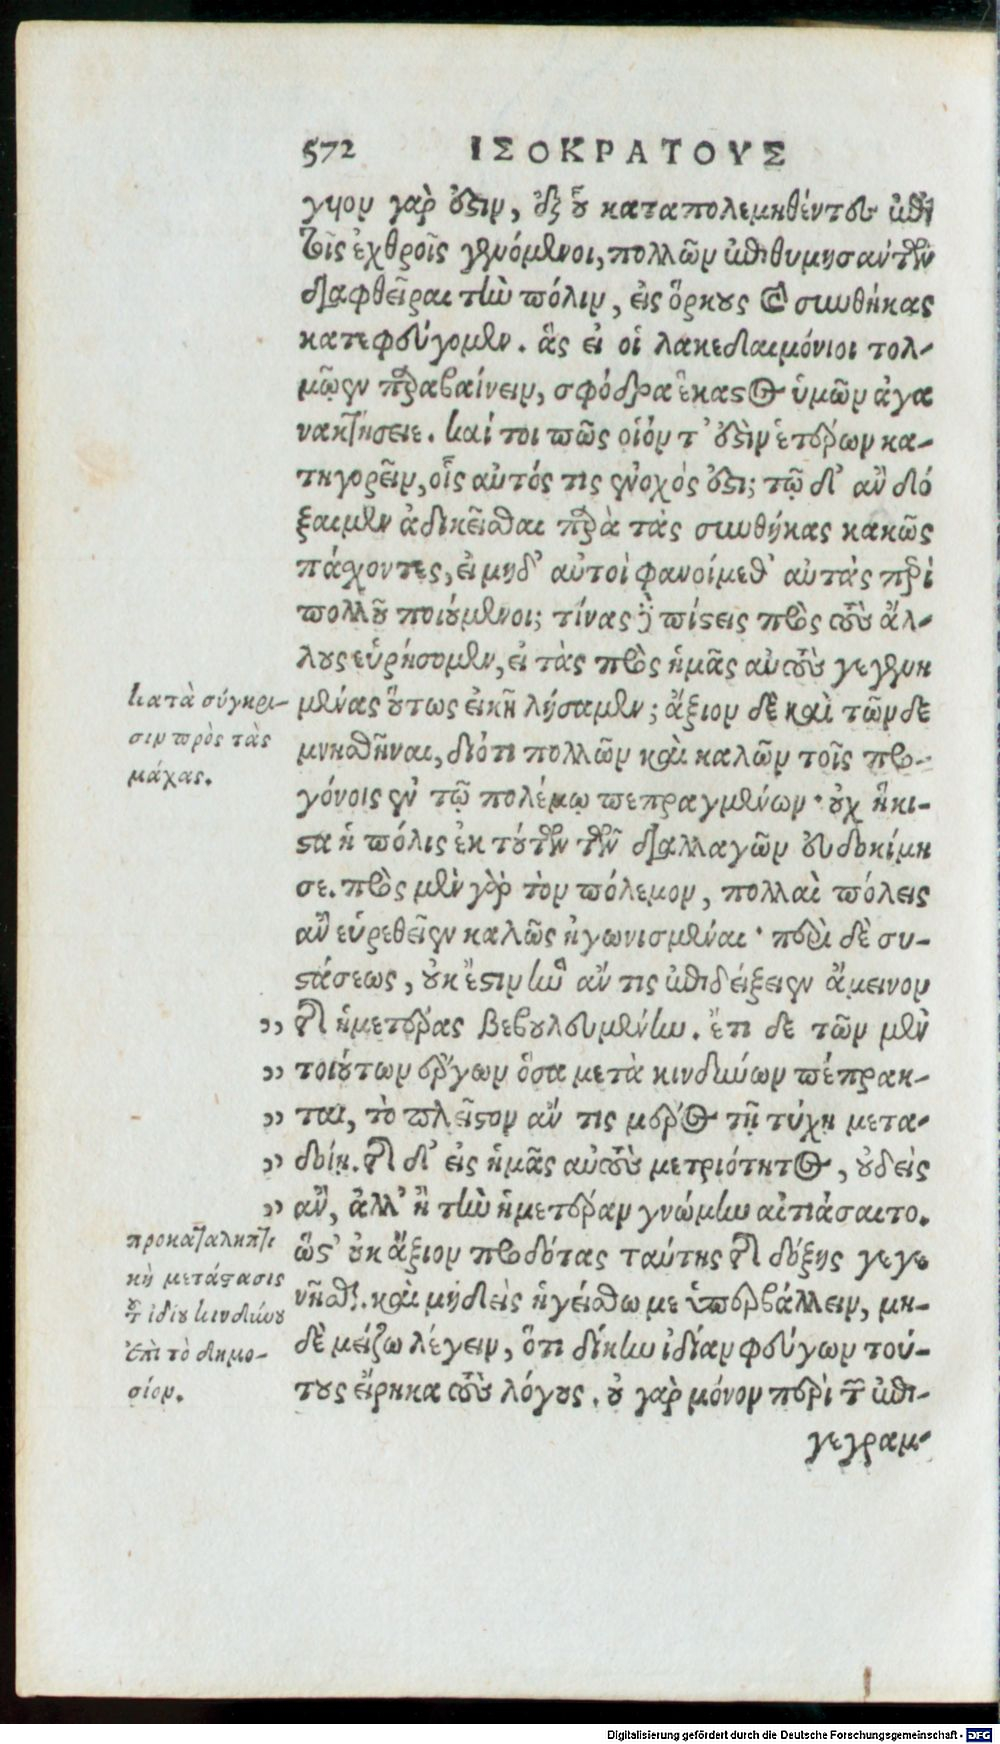 572 ΙΣΟΚΡΑΤΟΥΣ
γυον γαρ ὅστιν, ἐξ οὗ καταπολεμηθέντες ἐπὶ
τοῖς ἐχθροῖς γενόμενοι, πολλῶν ἐπιθυμησάντων
διαφθεῖραι τὴν πόλιν, εἰς ὅρκους καὶ συνθήκας
κατεφεύγομεν. ἃς εἰ οἱ λακεδαιμόνιοι τολ-
μῷεν παραβαίνειν, σφόδρα ἕκαστος ὑμῶν ἀγα
νακτήσειε. καί τοι πῶς οἷόν τ' ἐστὶν ἑτέρων κα-
τηγορεῖν, οἷς αὐτός τις ἔνοχός ἐστι; τῷ δ' ἂν δό
ξαιμεν ἀδικεῖσθαι παρὰ τὰς συνθήκας κακῶς
πάσχοντες, εἰ μηδ' αὐτοὶ φανοίμεθ' αὐτὰς περὶ
πολλοῦ ποιούμενοι; τίνας δὲ πίστεις πρὸς τοὺς ἄλ-
λους εὑρήσομεν, εἰ τὰς πρὸς ἡμᾶς αὐτοὺς γεγενη
κατὰ σύγκρι-
σιν πρὸς τὰς
μάχας.
μένας οὕτως εἰκῆ λύσαμεν; ἄξιον δὲ καὶ τῶν δε
μνησθῆναι, διότι πολλῶν καὶ καλῶν τοῖς προ-
γόνοις ἐν τῷ πολέμῳ πεπραγμένων· οὐχ ἥκι-
στα ἡ πόλις ἐκ τούτων τῶν διαλλαγῶν εὐδοκίμη
σε. πρὸς μὲν γὰρ τὸν πόλεμον, πολλαὶ πόλεις
ἂν εὑρεθεῖεν καλῶς ἠγωνισμέναι· περὶ δὲ συ-
στάσεως, οὐκ ἔστιν ἣν ἄν τις ἐπιδείξειεν ἄμεινον
,, τῆς ἡμετέρας βεβουλευμένην. ἔτι δε τῶν μὲν
,, τοιούτων ἔργων ὅσα μετὰ κινδύνων πέπρακ-
,, ται, τὸ πλεῖστον ἄν τις μέρος τῇ τύχη μετα-
,, δοίη. τῆς δ' εἰς ἡμᾶς αὐτοὺς μετριότητος, οὐδεὶς
,, ἂν, ἀλλ' ἢ τὴν ἡμετέραν γνώμην αἰτιάσαιτο.
προκαταληπτι
κὴ μετάστασις
τοῦ ἰδίου κινδύνου
ἐπὶ τὸ δημο-
σίον.
ὥστ' οὐκ ἄξιον προδότας ταύτης τῆς δόξης γεγε
νῆσθαι. καὶ μηδεὶς ἡγείσθω με ὑπερβάλλειν, μη-
δὲ μείζω λέγειν, ὅτι δίκην ἰδίαν φεύγων τού-
τους εἴρηκα τοὺς λόγους. οὐ γαρ μόνον περὶ τῶν ἐπι-
γεγραμ-
Digitalisierung gefördert durch die Deutsche Forschungsgemeinschaft - DFG